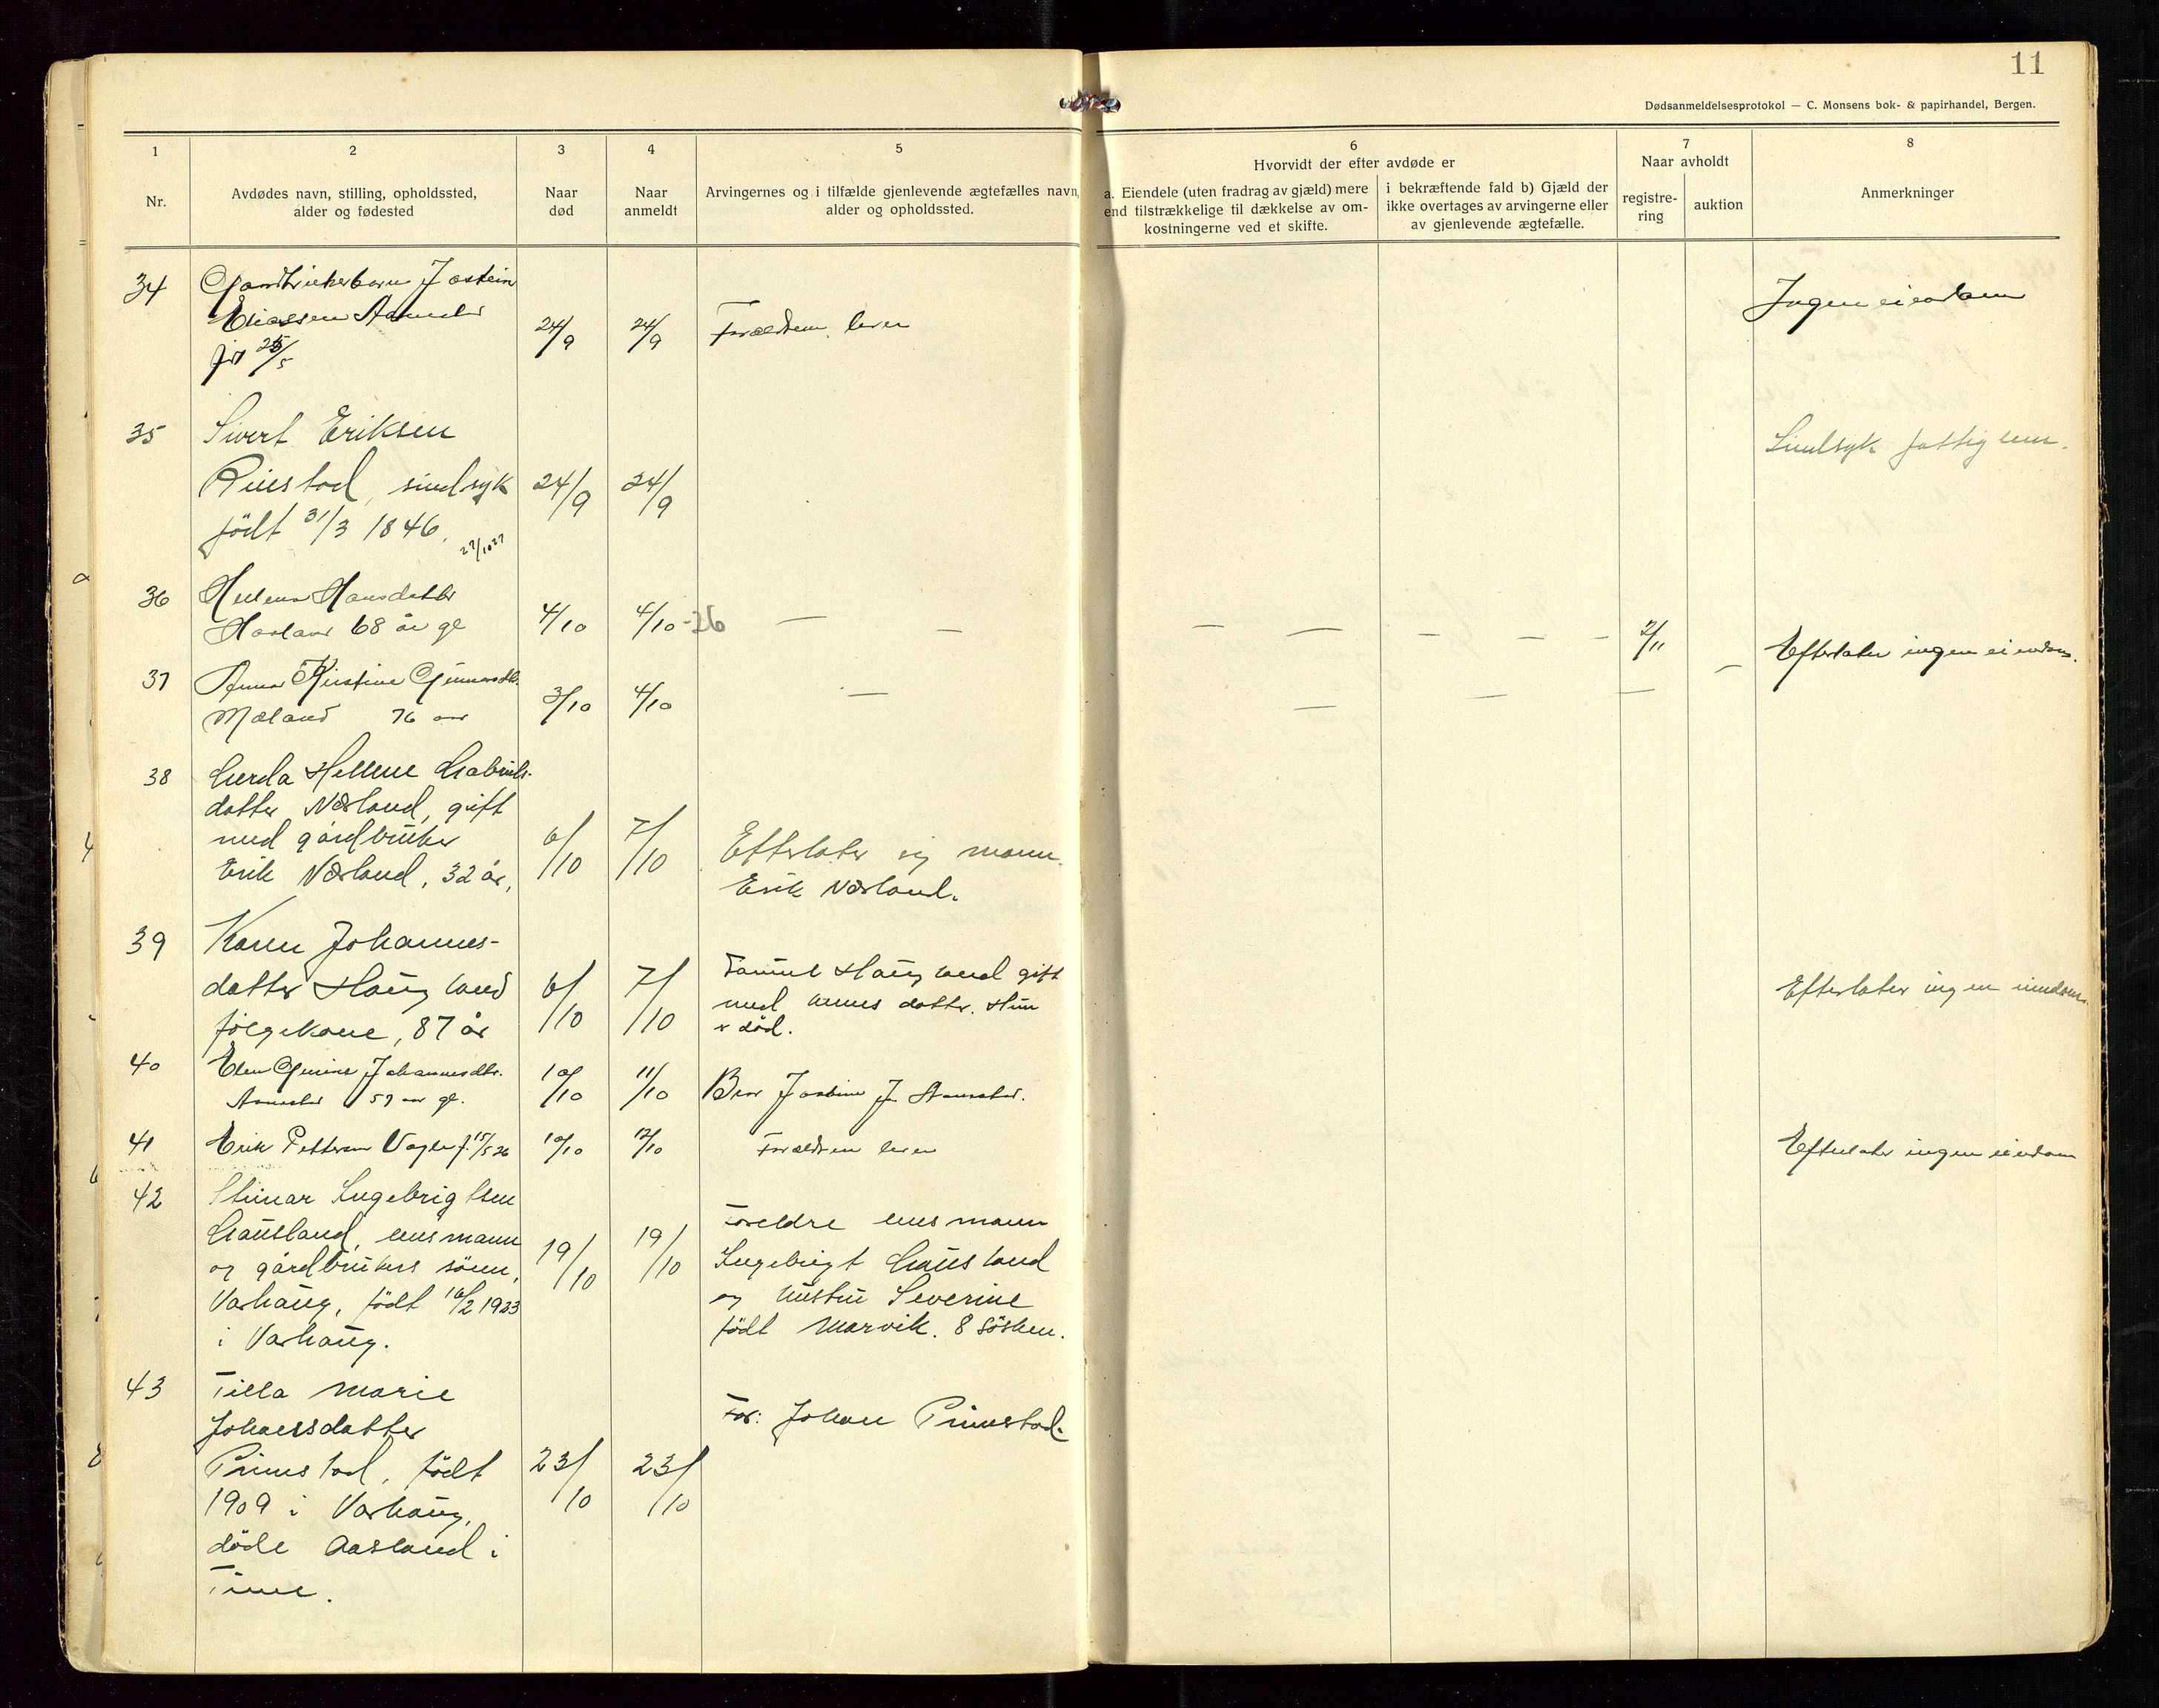 11
Dødsanmeldelsesprotokol — C. Monsens bok- & papirhandel, Bergen.
1
Nr.
2
Avdødes navn, stilling, opholdssted,
alder og fødested
3
Naar
død
4
Naar
anmeldt
5
Arvingernes og i tilfælde gjenlevende ægtefælles navn,
alder og opholdssted.
6
Hvorvidt der efter avdøde er
a. Eiendele (uten fradrag av gjæld) mere
end tilstrækkelige til dækkelse av om-
kostningerne ved et skifte.
i bekræftende fald b) Gjæld der
ikke overtages av arvingerne eller
av gjenlevende ægtefælle.
7
Naar avholdt
registre-
ring
auktion
8
Anmerkninger
34
Gaardbrukerbarn Jostein
Eliassen
24/9
24/9
Forældrene lever
Ingen eiendom
35
Sivert Eriksen
sindsyk
født 31/3 1846.
24/9
24/9
Sindsyk fattiglem.
36
Hansdatter
68 år gl
4/10
4/10-26
— — — — — — —
2/11
—
Efterlater ingen eiendom.
37
Anna Kristine Gunnarsdtr.
Mæland 76 aar
3/10
4/10
— — — —
38
Gerda Hellene Gabriels-
datter Nærland, gift
med gårdbruker
Erik Nærland, 32 år,
6/10
7/10
Efterlater sig mann.
Erik Nærland.
39
Karen Johannes-
datter Haugland
følgekone, 87 år
6/10
7/10
Haugland gift
med datter. Hun
er død.
Efterlater ingen eiendom.
40
Elen Gurine Johannesdtr.
57 aar gl.
10/10
11/10
Bror J.
41
Erik Pettersen f. 15/5 26
10/10
12/10
Forældrene lever
Efterlater ingen eiendom
42
Steinar Ingebrigtsen
Gausland, lensmann
og gårdbrukers sønn,
Varhaug, født 16/2 1923
i Varhaug.
19/10
19/10
Foreldre lensmann
Ingebrigt Gausland
og hustru Severine
født Marvik. 8 søsken.
43
Tilla Marie
Johansdatter
Prinsstad, født
1909 i Varhaug,
døde Aasland i
Time.
23/10
23/10
Far: Johan Prinsstad.